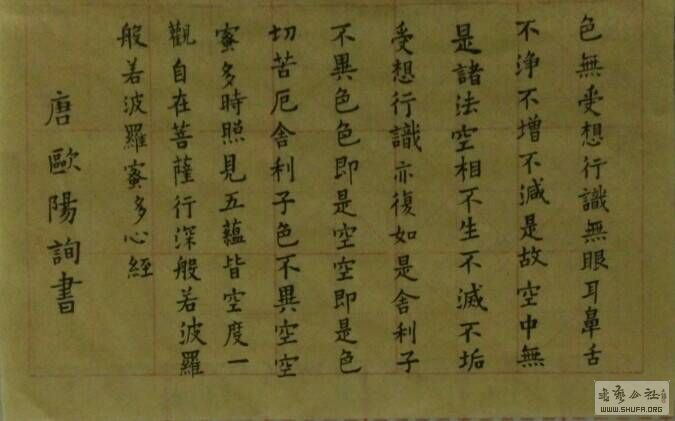 唐歐陽詢書
般若波羅蜜多心經
觀自在菩薩行深般若波羅
蜜多時照見五蘊皆空度一
切苦厄舍利子色不異空空
不異色色即是空空即是色
受想行識亦復如是舍利子
是諸法空相不生不滅不垢
不浄不增不減是故空中無
色無受想行識無眼耳鼻舌
書藝公社
WWW.SHUFA.ORG